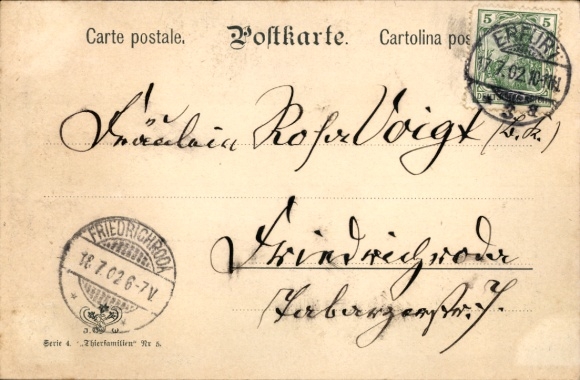 Carte postale. Postkarte. Cartolina pos
5 5
ERFURT
17.7.02.10-11N.
Fräulein Rosa Voigt
Friedrichroda
Tabarzerstr. 7.
FRIEDRICHRODA
18.7.02 6-7V.
Serie 4. „Thierfamilien" Nr 5.